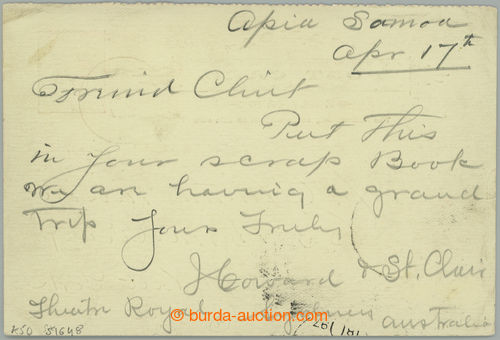 Apia Samoa
Apr 17th
Freind Clint
Put This
in your scrap Book
we are having a grand
Trip Yours Truly
Howard & St. Clair
Theatre Royal Sydney
Australia
burda-auction.com